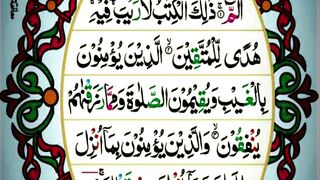 الٓمّٓ ۚ ذٰلِكَ الْكِتٰبُ لَا رَیْبَ ۛۖۚ فِیْهِ ۛۚ
هُدًی لِّلْمُتَّقِیْنَ ۙ الَّذِیْنَ یُؤْمِنُوْنَ
بِالْغَیْبِ وَیُقِیْمُوْنَ الصَّلٰوةَ وَمِمَّا رَزَقْنٰهُمْ
یُنْفِقُوْنَ ۙ وَالَّذِیْنَ یُؤْمِنُوْنَ بِمَاۤ اُنْزِلَ